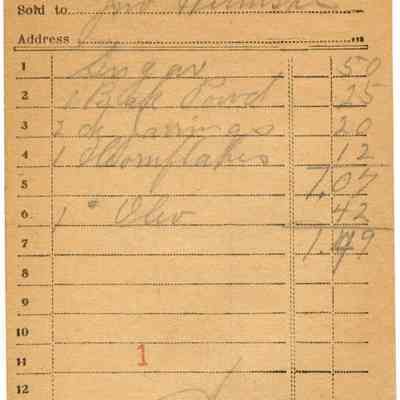 Sold to Jno
Address
1 Sugar 50
2 1 Bak Powd 25
3 2 20
4 1 Cornflakes 12
5 1,07
6 1 " Oleo 42
7 1.49
8
9
10
11 1
12